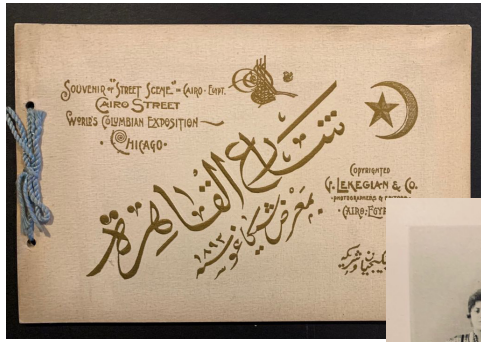 SOUVENIR OF "STREET SCENE" = CAIRO · EGYPT.
CAIRO STREET
WORLD'S COLUMBIAN EXPOSITION
· CHICAGO ·
شارع القاهرة
بمعرض شيكاغو سنة ١٨٩٣
COPYRIGHTED
G. LEKEGIAN & CO.
· PHOTOGRAPHERS &
· CAIRO · EGY
وشريكه